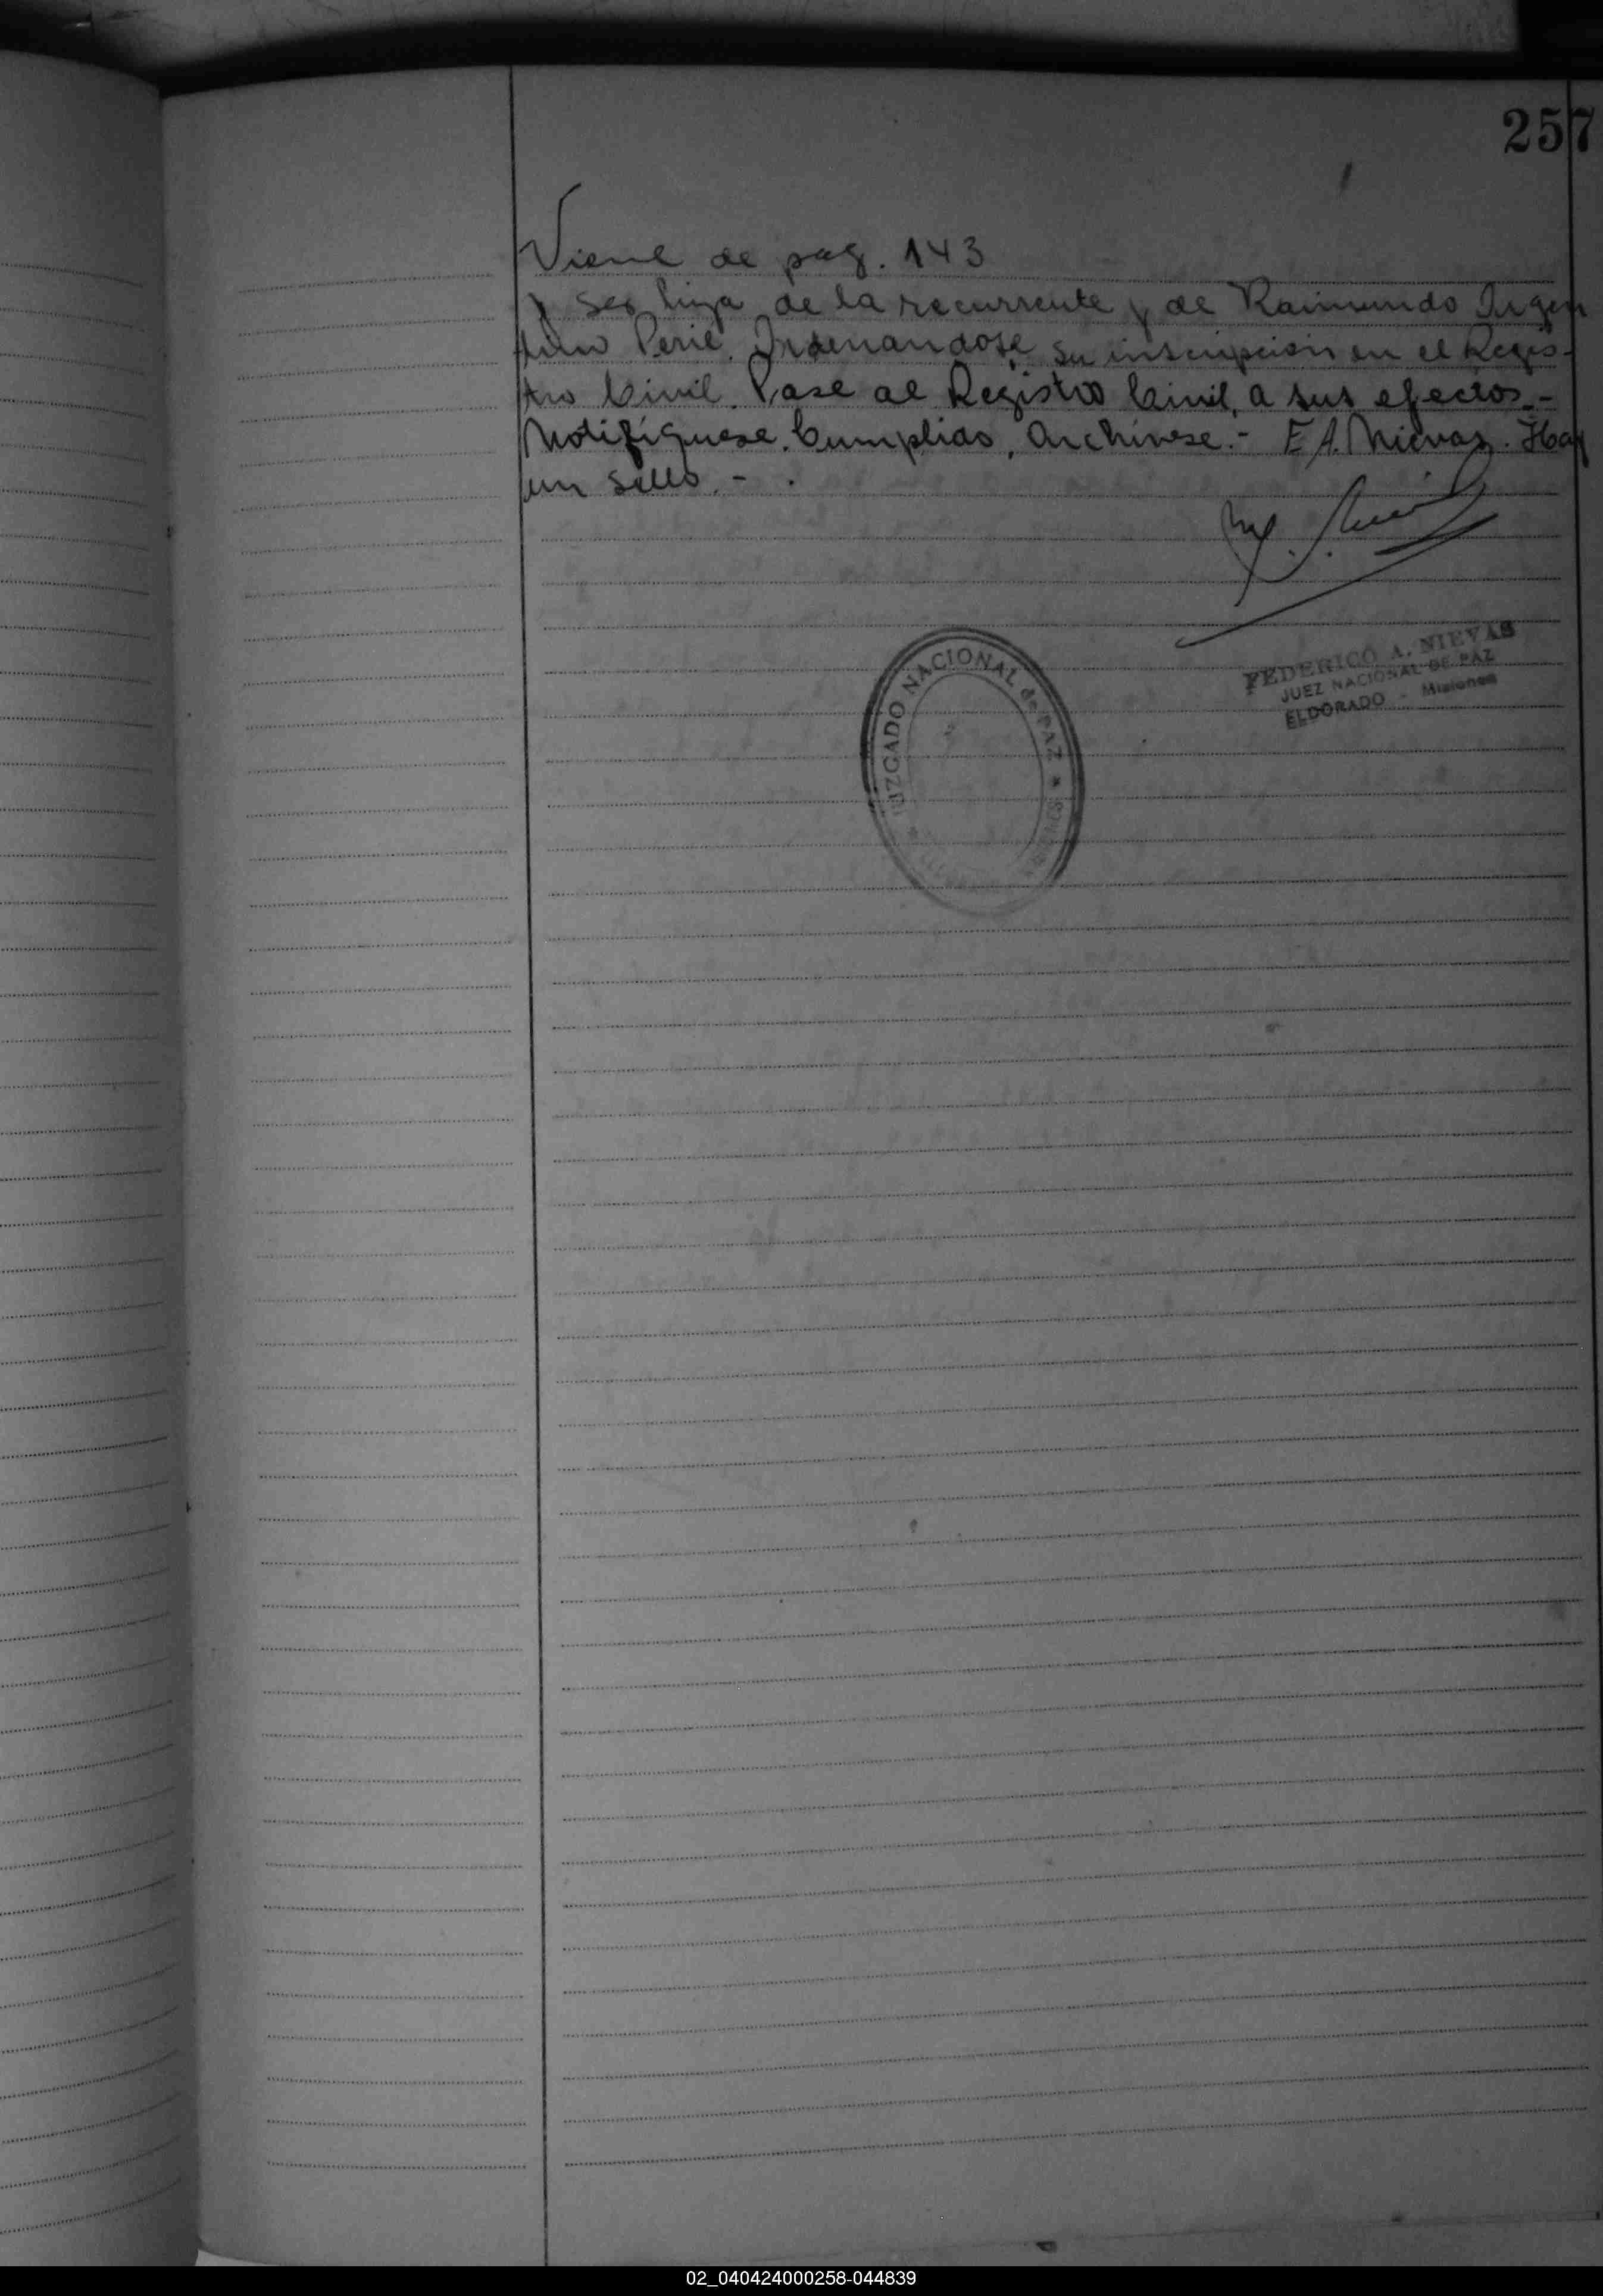 257
Viene de pag. 143
y ser hija de la recurrente y de Raimundo Argen
tino Perie. Ordenandose su inscripción en el Regis-
tro Civil. Pase al Registro Civil, a sus efectos.-
Notifíquese. Cumplido, Archívese.- F A. Nievas. Hay
un sello.-
FEDERICO A. NIEVAS
JUEZ NACIONAL DE PAZ
ELDORADO - Misiones
JUZGADO NACIONAL de PAZ
02_040424000258-044839